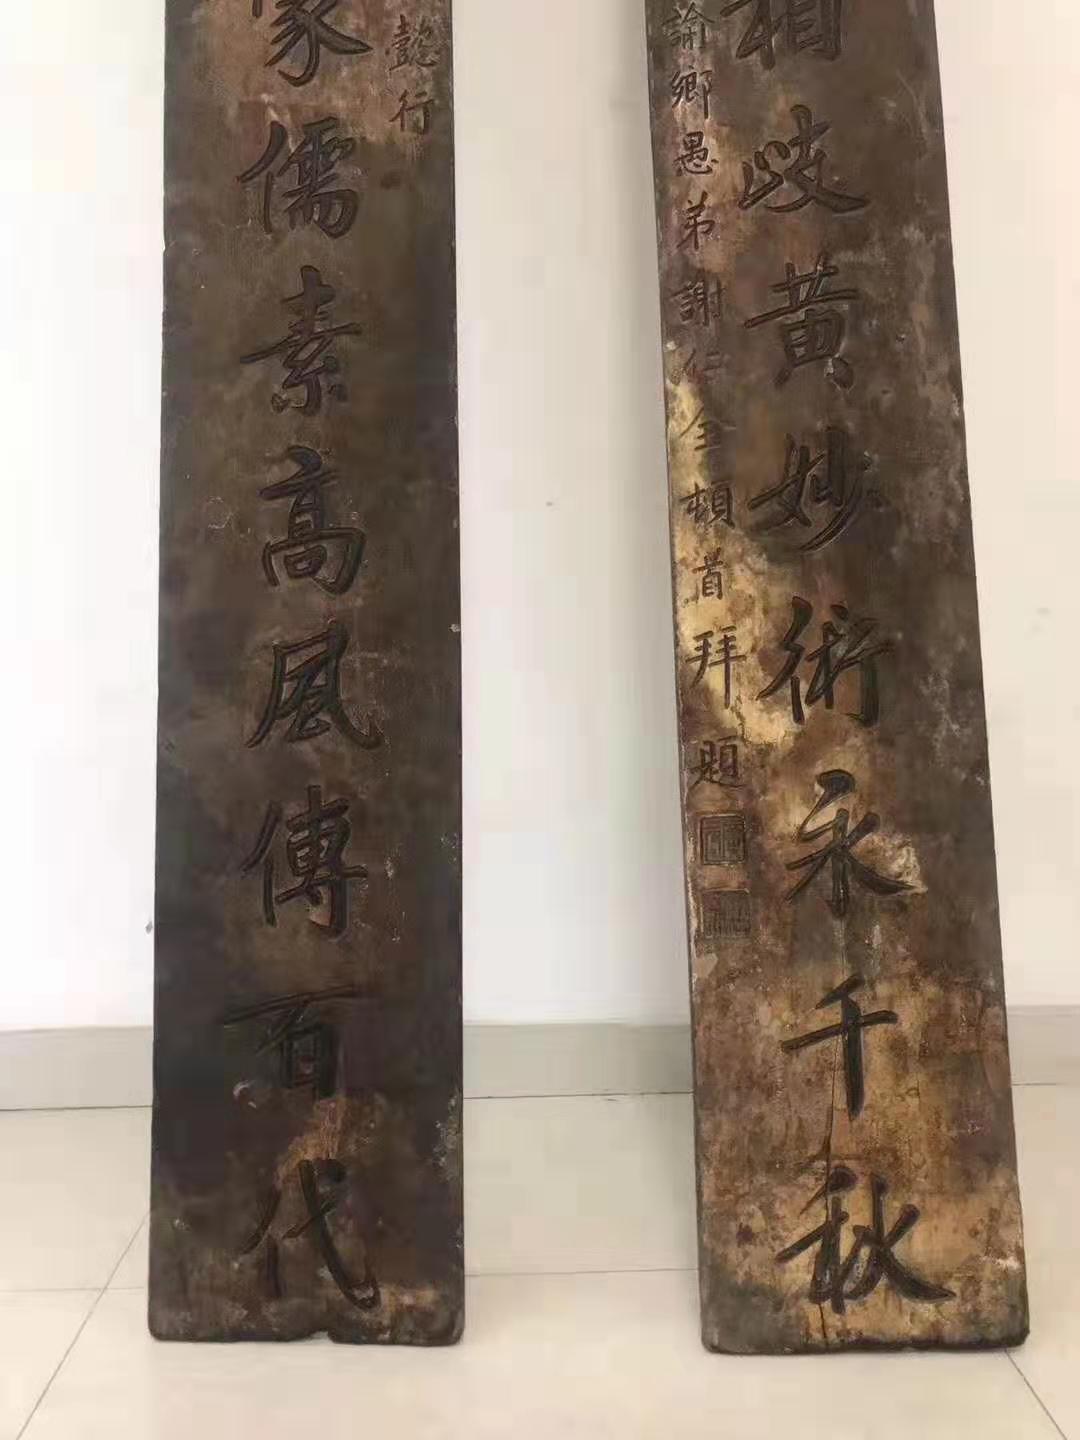 相歧黄妙術永千秋
諭鄉愚弟謝仁全頓首拜題
懿行
家儒素高風傳百代